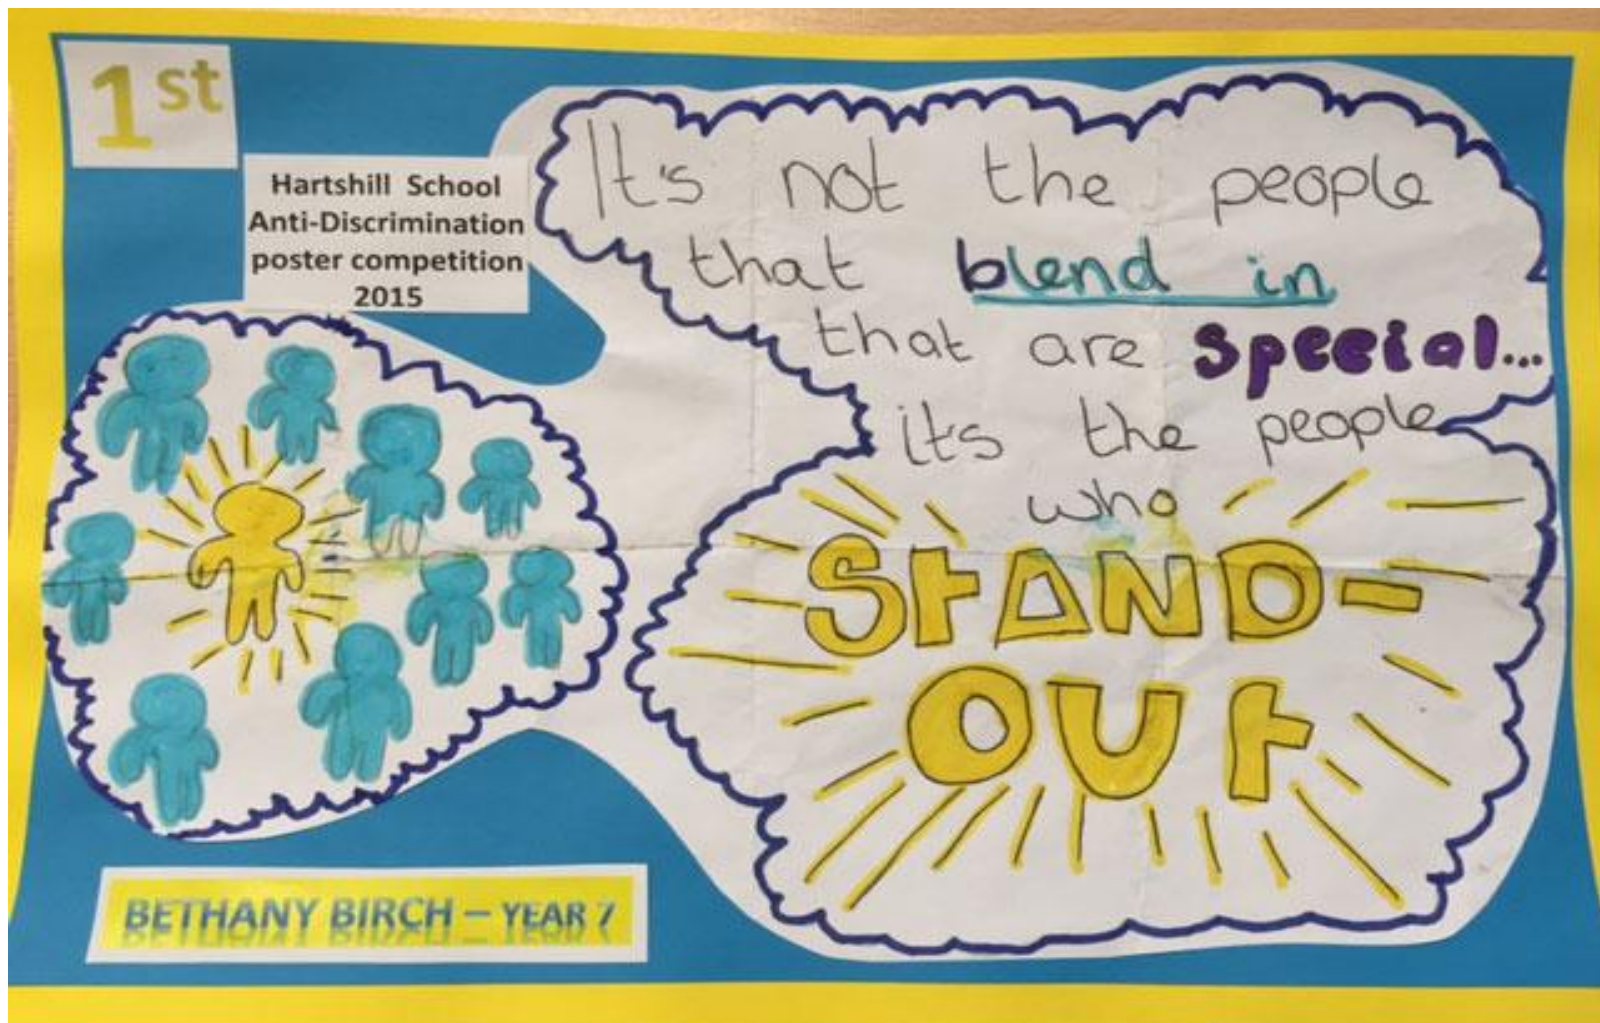 1st
Hartshill School
Anti-Discrimination
poster competition
2015
It's not the people
that blend in
that are special...
it's the people
who
StAND-
OUt
BETHANY BIRCH – YEAR 7